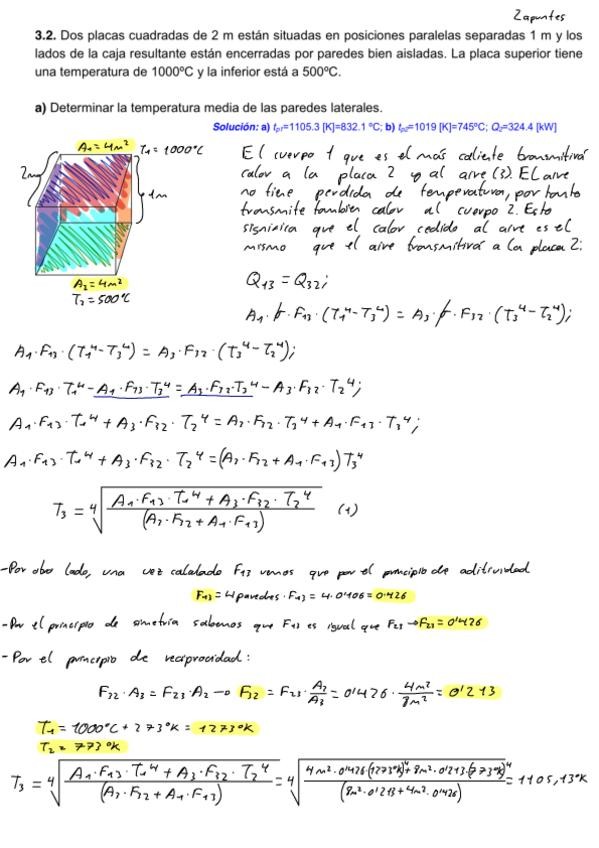 2 apuntes
3.2. Dos placas cuadradas de 2 m están situadas en posiciones paralelas separadas 1 m y los
lados de la caja resultante están encerradas por paredes bien aisladas. La placa superior tiene
una temperatura de 1000ºC y la inferior está a 500ºC.
a) Determinar la temperatura media de las paredes laterales.
Solución: a) tp1=1105.3 [K]=832.1 ºC; b) tp2=1019 [K]=745ºC; Q2=324.4 [kW]
A1=4m² T1=1000°C
2m
1m
A2=4m²
T2=500°C
El cuerpo 1 que es el más caliente transmitirá
calor a la placa 2 y al aire (3). El aire
no tiene perdida de temperatura, por tanto
transmite tambien calor al cuerpo 2. Esto
significa que el calor cedido al aire es el
mismo que el aire transmitirá a la placa 2:
Q13 = Q32;
A1·σ·F13·(T1⁴-T3⁴) = A3·σ·F32·(T3⁴-T2⁴);
A1·F13·(T1⁴-T3⁴) = A3·F32·(T3⁴-T2⁴);
A1·F13·T1⁴-A1·F13·T3⁴ = A3·F32·T3⁴-A3·F32·T2⁴;
A1·F13·T1⁴+A3·F32·T2⁴ = A3·F32·T3⁴+A1·F13·T3⁴;
A1·F13·T1⁴+A3·F32·T2⁴ = (A3·F32+A1·F13)T3⁴
T3 = ⁴√((A1·F13·T1⁴+A3·F32·T2⁴)/(A3·F32+A1·F13)) (1)
-Por otro lado, una vez calculado F13 vemos que por el principio de aditividad
F13=4paredes·F13=4·0'106=0'426
-Por el principio de simetría sabemos que F13 es igual que F23→F23=0'426
-Por el principio de reciprocidad:
F32·A3=F23·A2→F32=F23·A2/A3=0'426·4m²/8m²=0'213
T1=1000°C+273°K=1273°K
T2=773°K
T3 = ⁴√((A1·F13·T1⁴+A3·F32·T2⁴)/(A3·F32+A1·F13)) = ⁴√((4m²·0'426·(1273°K)⁴+8m²·0'213·(773°K)⁴)/(8m²·0'213+4m²·0'426)) = 1105,13°K